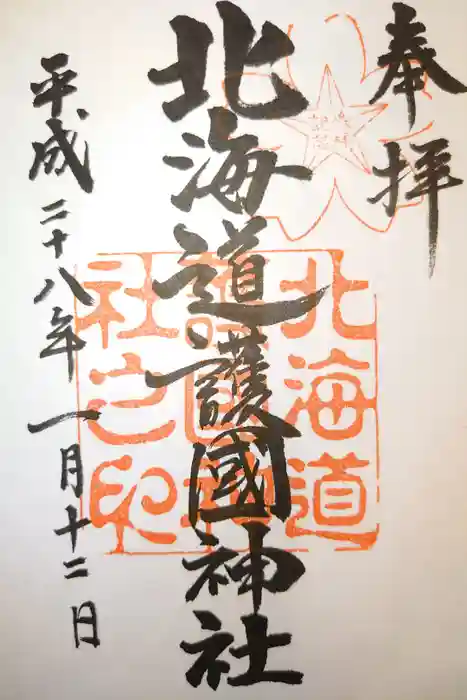 奉拝
北海道護國神社
平成二十八年一月十二日
北海道
護國神
社之印